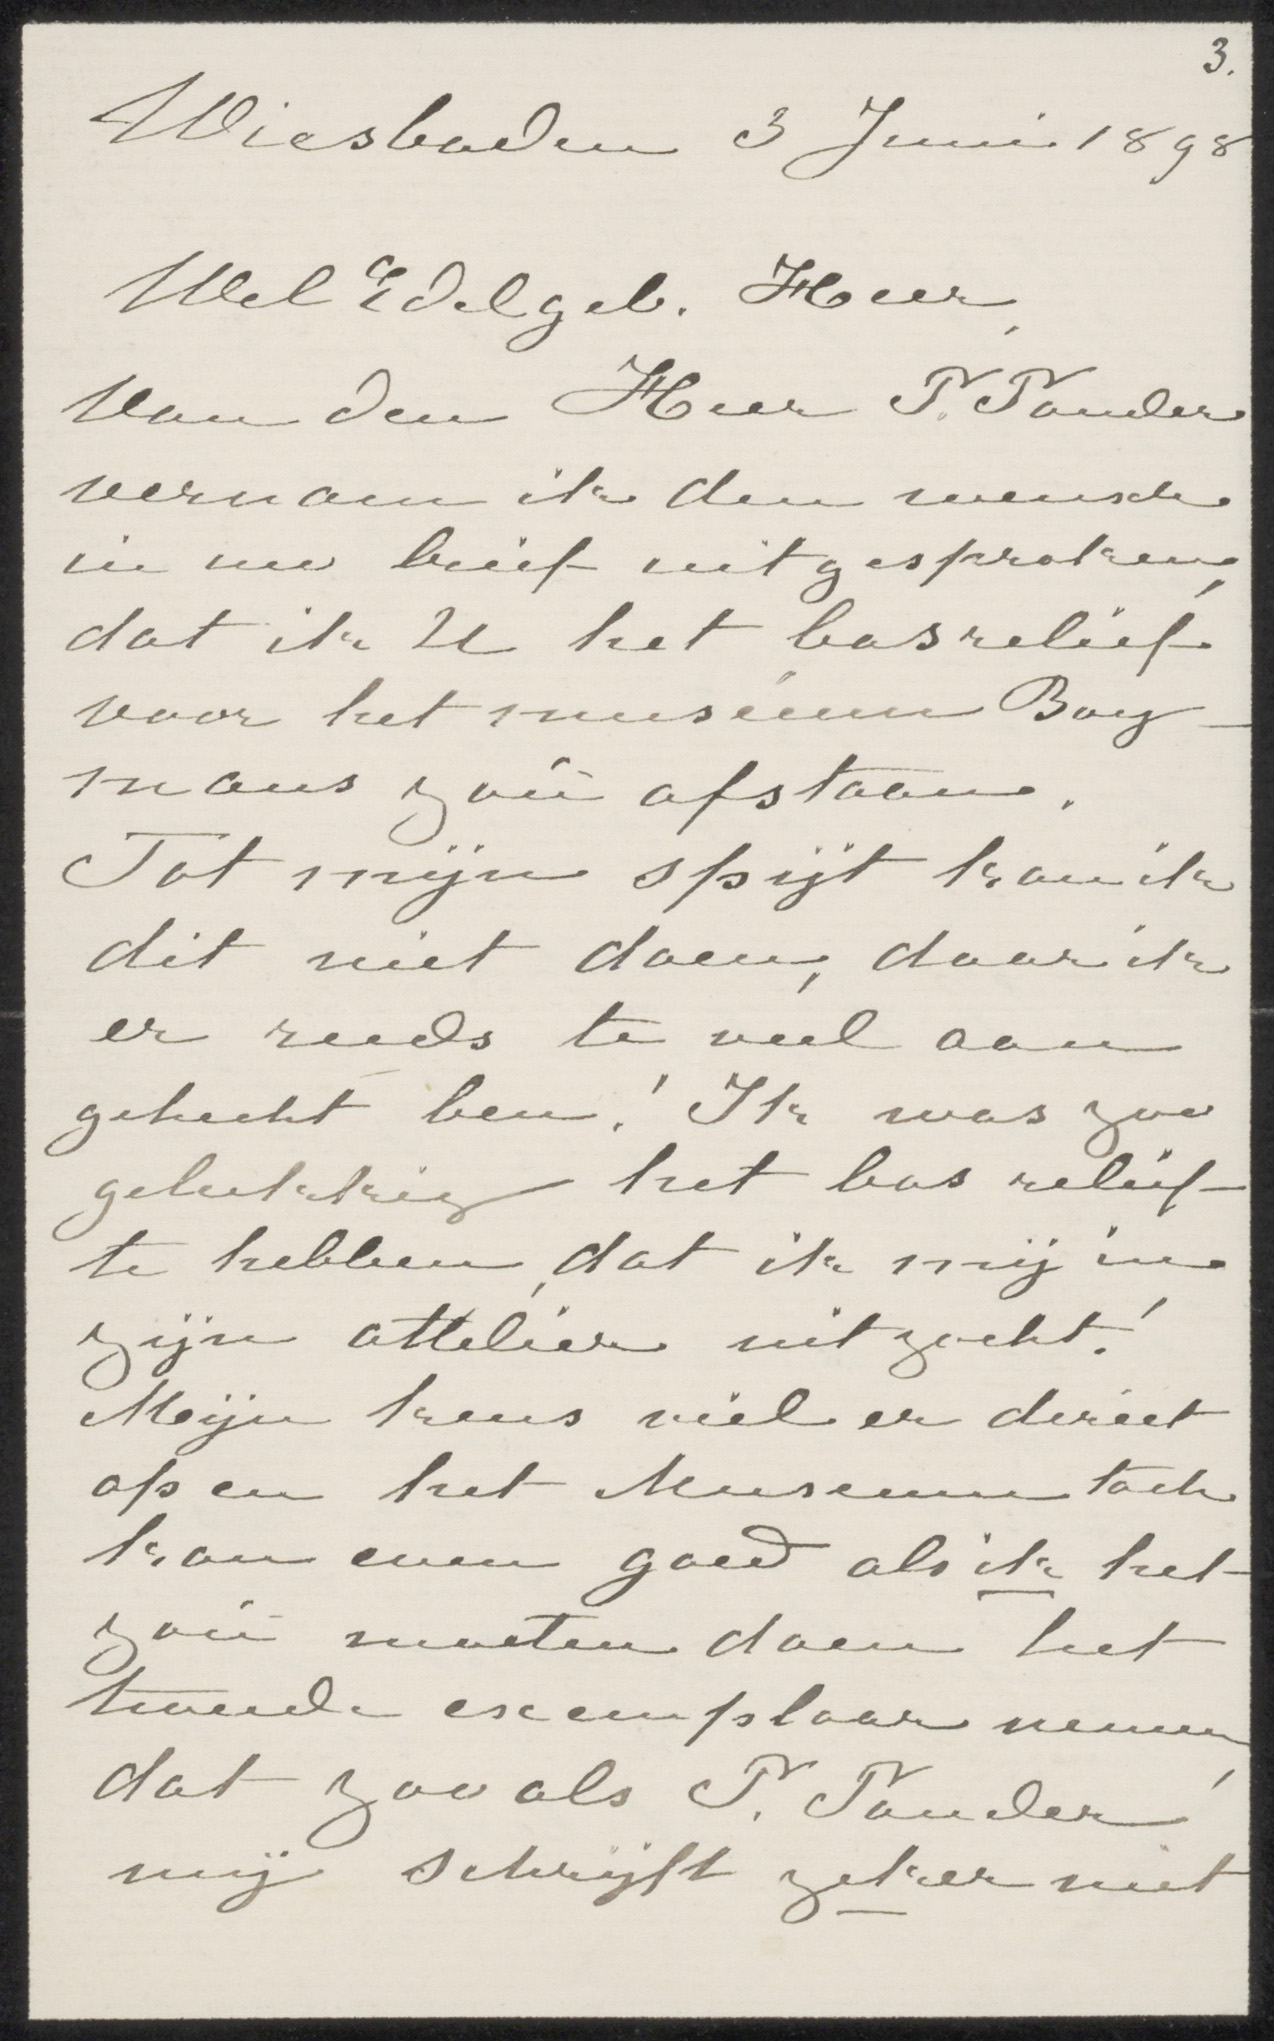 3.
Wiesbaden 3 Juni 1898
Wel Edelgeb. Heer,
Van den Heer T. Tander
vernam ik den wensch
in uw brief uitgesproken,
dat ik U het basrelief
voor het muséum Boy-
mans zoû afstaan.
Tot mijn spijt kan ik
dit niet doen, daar ik
er reeds te veel aan
gehecht ben! Ik was zoo
gelukkig het bas relief
te hebben, dat ik mij in
zijn attelier uitzocht!
Mijn keus viel er direct
op en het Museum toch
kan even goed als ik het
zoû moeten doen het
tweede exemplaar nemen,
dat zooals T. Tander
mij schrijft zeker niet